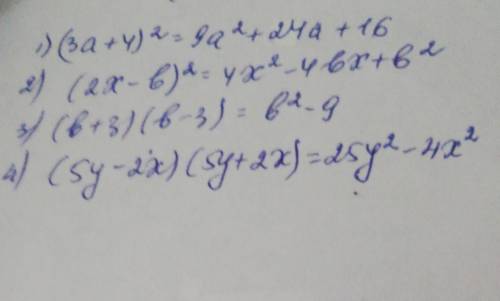 1) (3a+4)² = 9a² + 24a + 16
2) (2x - b)² = 4x² - 4bx + b²
3) (b+3)(b-3) = b² - 9
4) (5y - 2x)(5y + 2x) = 25y² - 4x²